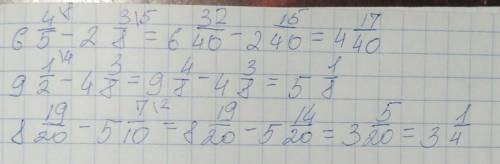 6 4\8/5 - 2 3\5/8 = 6 32/40 - 2 15/40 = 4 17/40
9 1\4/2 - 4 3/8 = 9 4/8 - 4 3/8 = 5 1/8
8 19/20 - 5 7\2/10 = 8 19/20 - 5 14/20 = 3 5/20 = 3 1/4